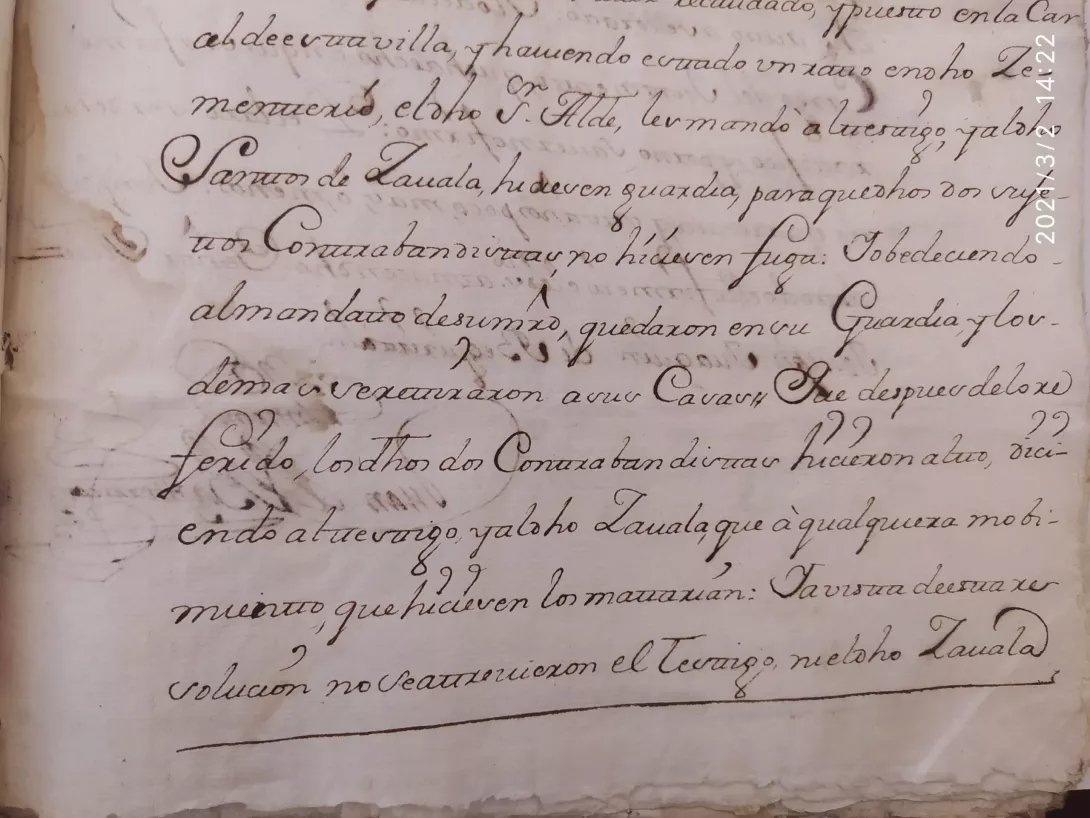 recaudado, y puesto en la Car
el de estta villa, y haviendo esttado un ratto en dho Ze-
mentterio, el dho Sor. Alde, les mandò à el testtigo, y al dho
Santtos de Zavala, hiciesen guardia, para que dhos dos suje-
ttos Conttrabandisttas, no hiciesen fuga: Y obedeciendo
al mandatto de su mrd, quedaron en su Guardia, y los
demas se rettiraron a sus Casas,, Que despues de lo re
ferido, los dhos dos Conttrabandisttas hicieron altto, dici-
endo al testtigo, y al dho Zavala, que à qualquiera mobi-
mientto, que hiciesen los mattarian: Y a vistta de estta re
solucion no se attrevieron el Testtigo, ni el dho Zavala
2021/3/2 14:22